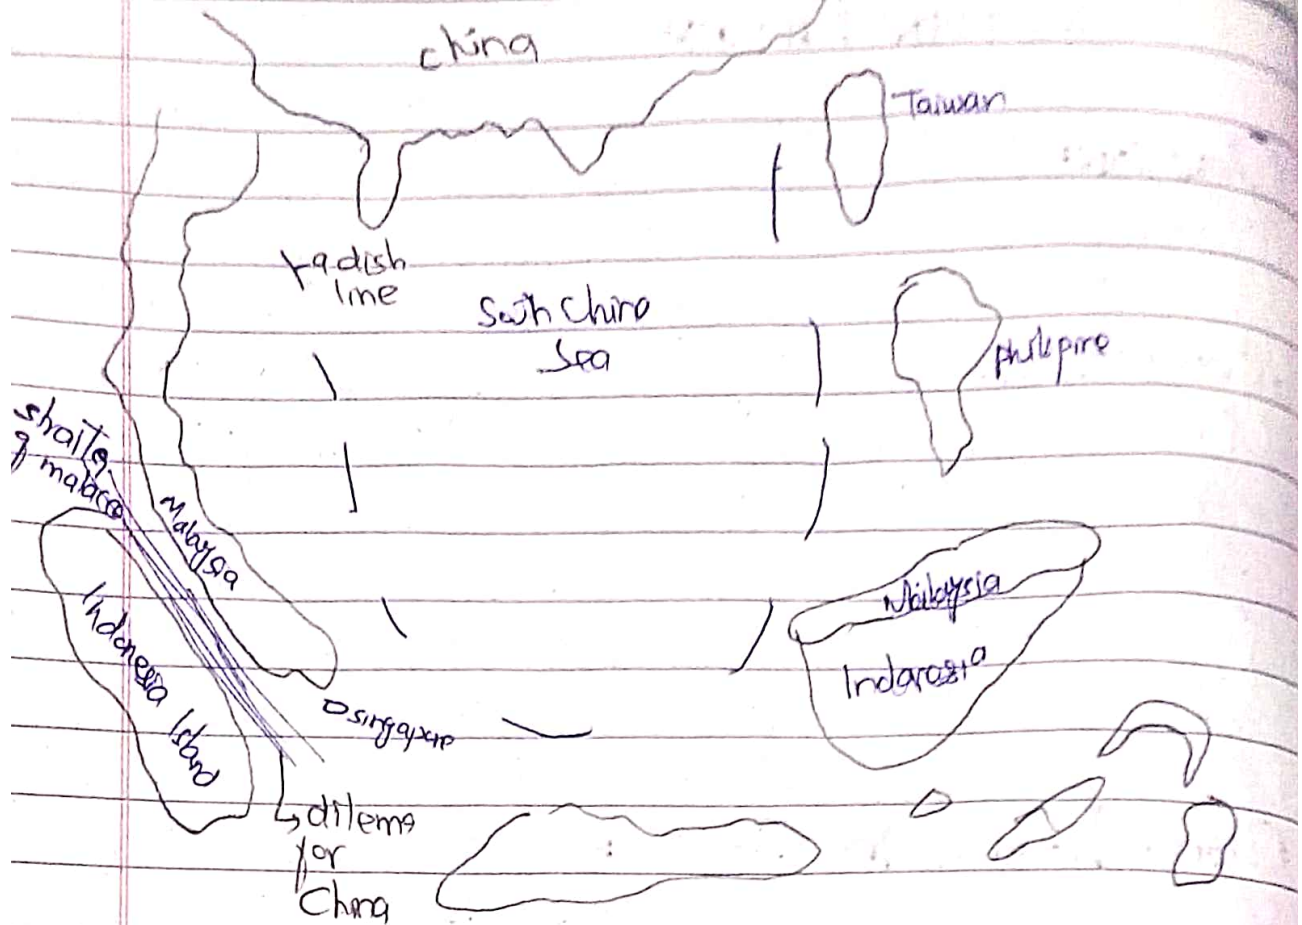 China
Taiwan
9 dish
line
South China
Sea
philipine
strait
of malacca
Malaysia
Malaysia
Indonesia
Indonesia Island
Singapore
dilema
for
China